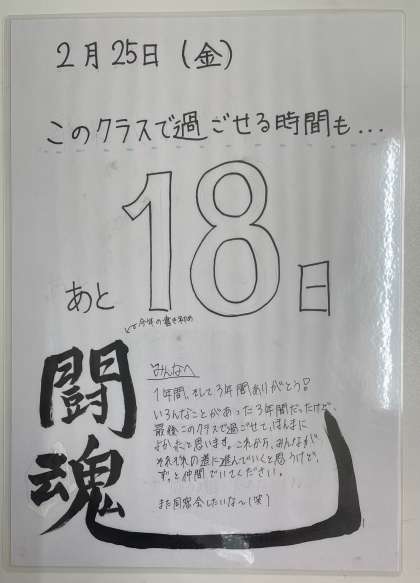 2月25日（金）
このクラスで過ごせる時間も...
あと18日
今年の書き初め
闘魂
みんなへ
1年間、そして3年間ありがとう!
いろんなことがあった3年間だったけど、
最後このクラスで過ごせて、ほんまに
よかったと思います。これから、みんなが
それぞれの道に進んでいくと思うけど、
ずっと仲間でいてください。
また同窓会したいな～(笑)